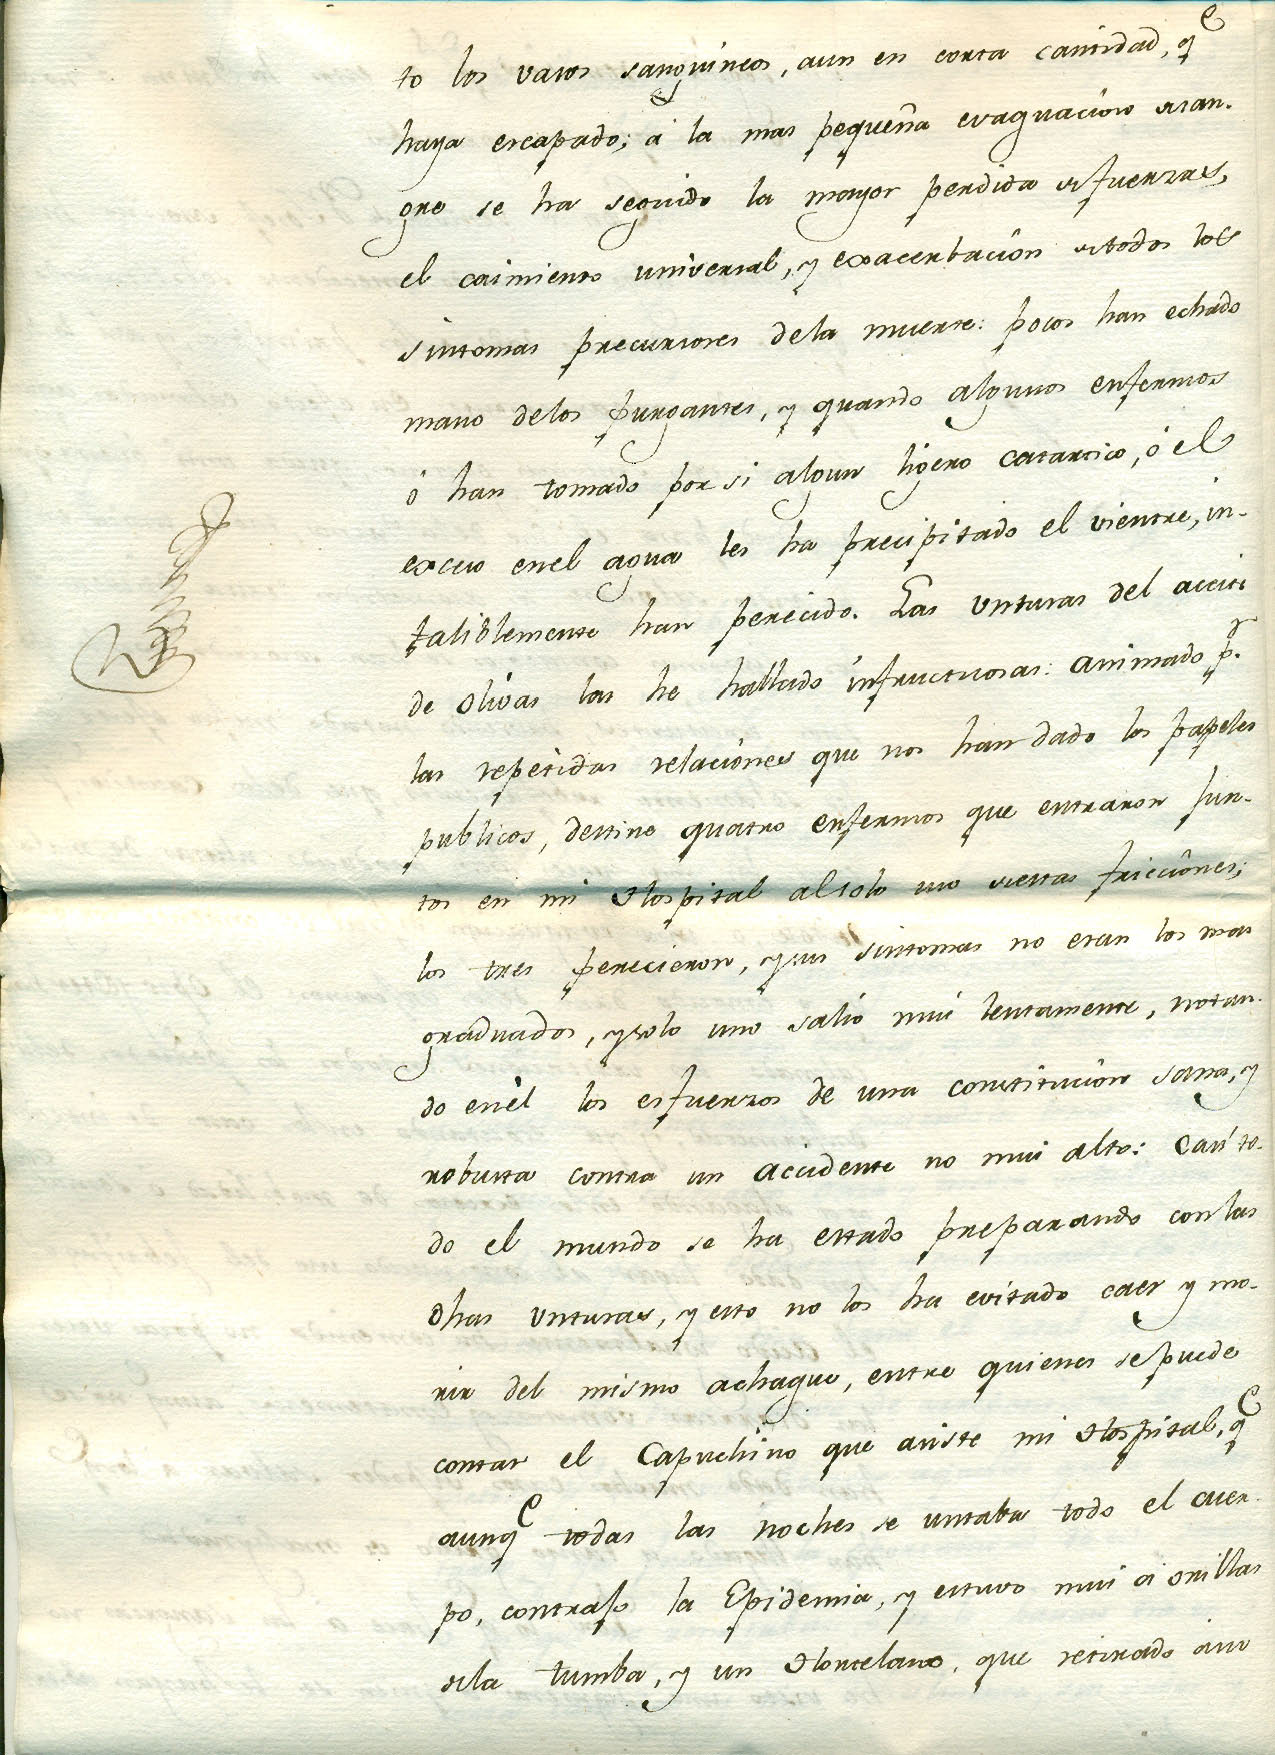 to los vasos sanguineos, aun en corta cantidad, qe
haya escapado; á la mas pequeña evaquacion desan-
gre se ha seguido la mayor perdida defuerzas,
el caimiento universal, y exacerbacion detodos los
sintomas precursores dela muerte: pocos han echado
mano delos purgantes, y quando algunos enfermos
ó han tomado por si algun ligero catartico, ó el
exceso enel agua les ha precipitado el vientre, in-
faliblemente han perecido. Las unturas del aceite
de olivas las he hallado infructuosas: animado pr.
las repetidas relaciones que nos han dado los papeles
publicos, destine quatro enfermos que entraron jun-
tos en mi Hospital alsolo uso deestas fricciones;
los tres perecieron, ysus sintomas no eran los mas
graduados, ysolo uno salió mui lentamente, notan-
do enél los esfuerzos de una constitucion sana, y
robusta contra un accidente no mui alto: Casi to-
do el mundo se ha estado preparando conlas
dhas unturas, y esto no los ha evitado caer y mo-
rir del mismo achaque, entre quienes sepuede
contar el Capuchino que asiste mi Hospital, qe
aunqe todas las noches se untaba todo el cuer-
po, contrajo la Epidemia, y estuvo mui á orillas
dela tumba, y un Hortelano, que retirado aun